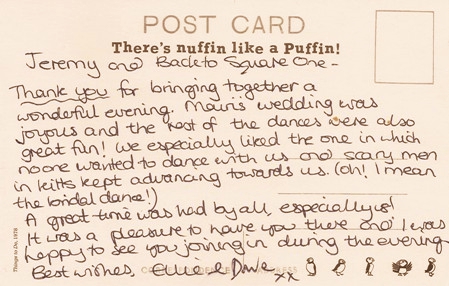 POST CARD
There's nuffin like a Puffin!
Jeremy and Back to Square One -
Thank you for bringing together a
wonderful evening. Mairi's wedding was
joyous and the rest of the dances were also
great fun! we especially liked the one in which
no one wanted to dance with us and scary men
in kilts kept advancing towards us. (oh! I mean
the bridal dance!)
A great time was had by all, especially us!
It was a pleasure to have you there and I was
happy to see you joining in during the evening
Best wishes, & xx
Things to Do, 1978